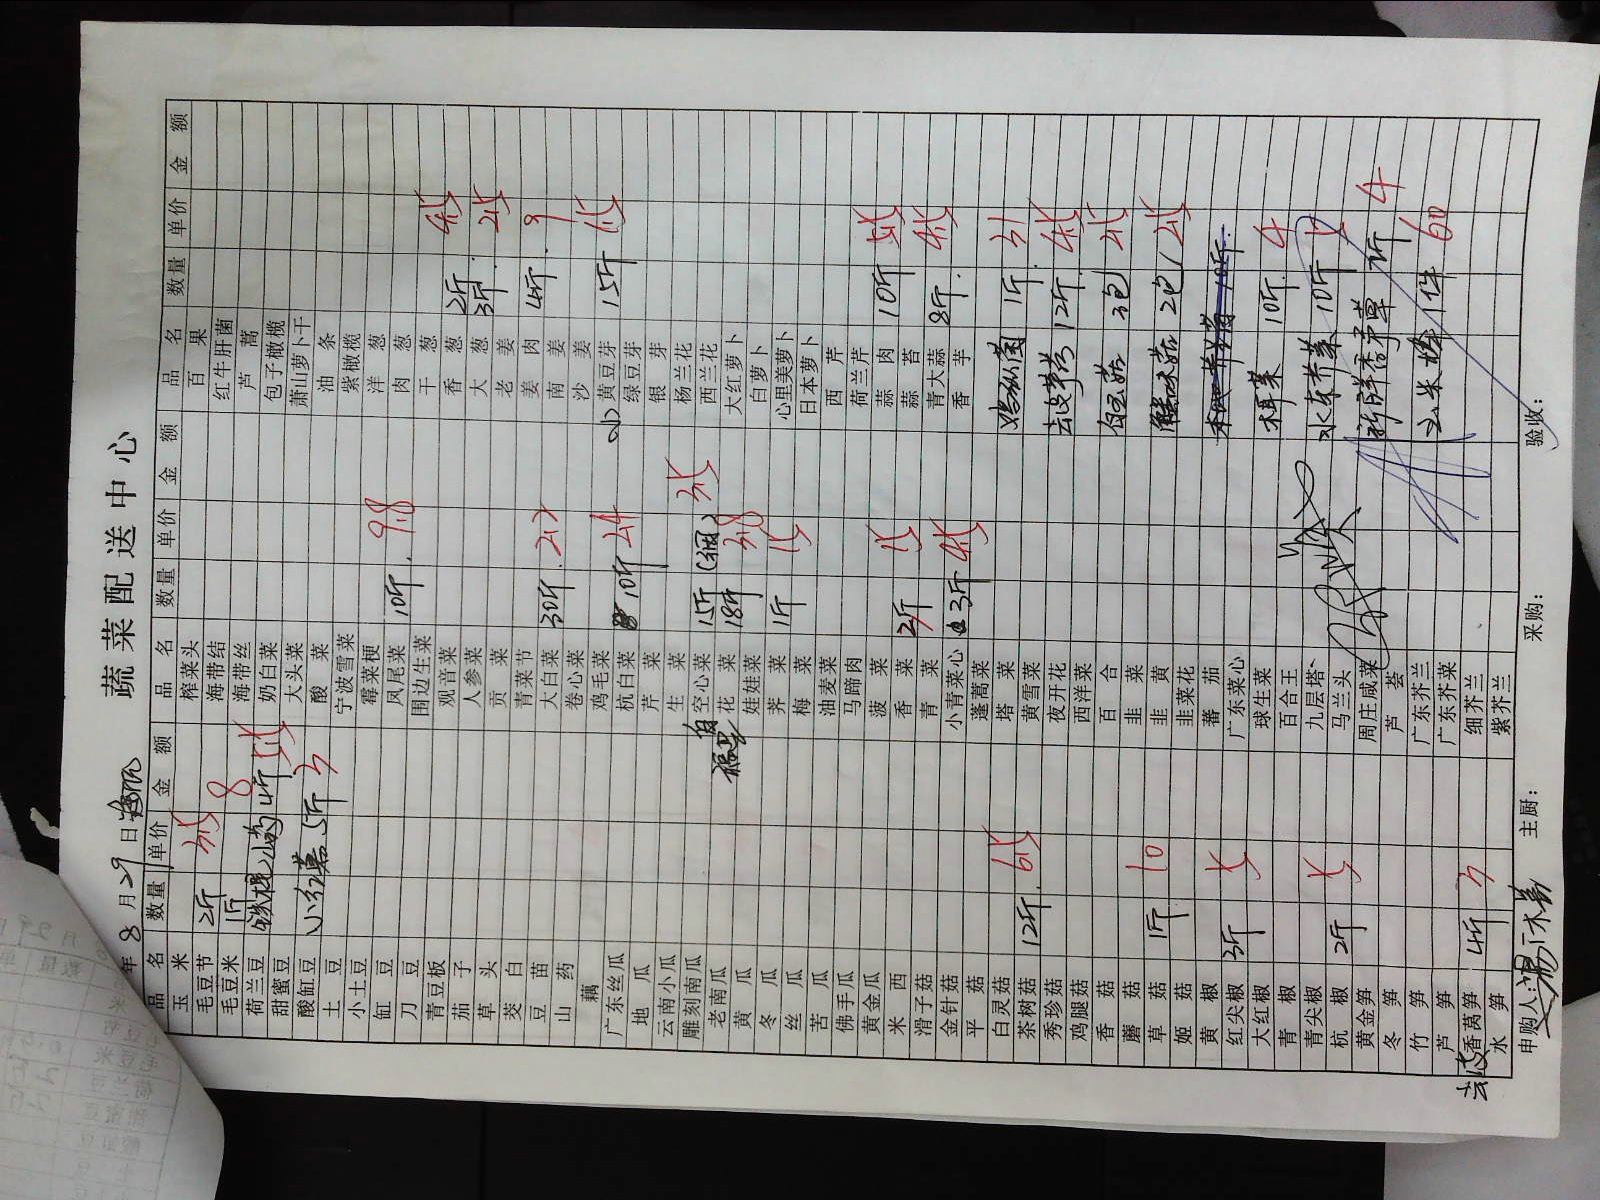 蔬菜配送中心
年 8 月 29 日
品名 数量 单价 金额
玉米
毛豆节 2斤 3.5
毛豆米 1斤 8
荷兰豆
甜蜜豆
酸缸豆
土豆
小土豆
缸豆
刀豆
青豆板
茄子
草头
茭白
豆苗
山药
藕
广东丝瓜
地瓜
云南小瓜
雕刻南瓜
老南瓜
黄瓜
冬瓜
丝瓜
苦瓜
佛手瓜
黄金瓜
米西
滑子菇
金针菇
平菇
白灵菇
茶树菇 12斤 6.5
秀珍菇
鸡腿菇
香菇
蘑菇
草菇 1斤 10
姬菇
黄椒
红尖椒 3斤 5
大红椒
青椒
青尖椒
杭椒 2斤 5
黄金笋
冬笋
竹笋
芦笋
去皮香莴笋 4斤 3
水笋
品名 数量 单价 金额
榨菜头
海带结
海带丝
奶白菜
大头菜
酸菜
宁波雪菜
霉菜梗
凤尾菜 10斤 9.8
围边生菜
观音菜
人参菜
贡菜
青菜节
大白菜 30斤
卷心菜
鸡毛菜
杭白菜 10斤 2.4
芹菜
生菜
空心菜 15斤 (细) 3.5
花菜 18斤 3.8
娃娃菜
荠菜 1斤 15
梅菜
油麦菜
马蹄肉
菠菜
香菜 2斤 15
青菜
小青菜心 3斤 4.5
蓬蒿菜
塔菜
黄雪菜
夜开花
西洋菜
百合
韭菜
韭黄
韭菜花
蕃茄
广东菜心
球生菜
百合王
九层塔
马兰头
周庄咸菜
芦荟
广东芥兰
广东芥菜
细芥兰
紫芥兰
品名 数量 单价 金额
百果
红牛肝菌
芦蒿
包子橄榄
萧山萝卜干
油条
紫橄榄
洋葱
肉葱
干葱
香葱 2斤 4.5
大葱 3斤 2.5
老姜
姜肉 4斤 9
南姜
沙姜
小黄豆芽 15斤 1.5
绿豆芽
银芽
杨兰花
西兰花
大红萝卜
白萝卜
心里美萝卜
日本萝卜
西芹
荷兰芹
蒜肉 10斤 5.5
蒜苔
青大蒜 8斤 4.5
香芋
鸡枞菌 1斤 31
去皮茅芋 12斤 4.5
白玉菇 3包 2.5
蟹味菇 2包 2.5
木耳菜 10斤 4
水东芥菜 10斤 12
新鲜香茅草 1斤 4
玉米棒 1件 60
申购人：
主厨：
采购：
验收：